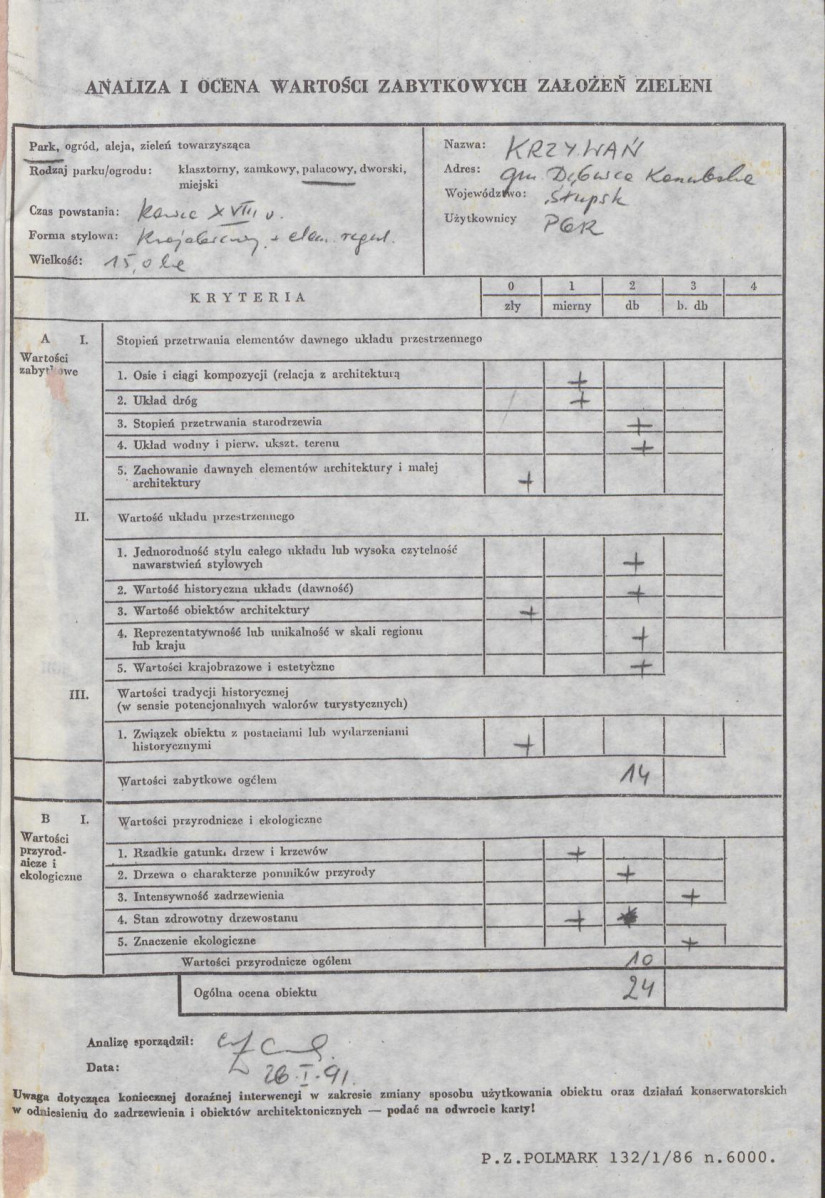 ANALIZA I OCENA WARTOŚCI ZABYTKOWYCH ZAŁOŻEŃ ZIELENI
Park, ogród, aleja, zieleń towarzysząca
Rodzaj parku/ogrodu: klasztorny, zamkowy, pałacowy, dworski,
miejski
Czas powstania: koniec XVIII w.
Forma stylowa: Krajobrazowy z elem. regul.
Wielkość: 15,0 ha
Nazwa: KRZYWAŃ
Adres: gm. Dębnica Kaszubska
Województwo: Słupsk
Użytkownicy PGR
KRYTERIA
0 1 2 3 4
zły mierny db b. db
A I. Stopień przetrwania elementów dawnego układu przestrzennego
Wartości
zabytkowe
1. Osie i ciągi kompozycji (relacja z architekturą +
2. Układ dróg +
3. Stopień przetrwania starodrzewia +
4. Układ wodny i pierw. ukszt. terenu +
5. Zachowanie dawnych elementów architektury i małej
architektury +
II. Wartość układu przestrzennego
1. Jednorodność stylu całego układu lub wysoka czytelność
nawarstwień stylowych +
2. Wartość historyczna układu (dawność) +
3. Wartość obiektów architektury +
4. Reprezentatywność lub unikalność w skali regionu
lub kraju +
5. Wartości krajobrazowe i estetyczne +
III. Wartości tradycji historycznej
(w sensie potencjonalnych walorów turystycznych)
1. Związek obiektu z postaciami lub wydarzeniami
historycznymi +
Wartości zabytkowe ogółem 14
B I. Wartości przyrodnicze i ekologiczne
Wartości
przyrod-
nicze i
ekologiczne
1. Rzadkie gatunki drzew i krzewów +
2. Drzewa o charakterze pomników przyrody +
3. Intensywność zadrzewienia +
4. Stan zdrowotny drzewostanu +
5. Znaczenie ekologiczne +
Wartości przyrodnicze ogółem 10
Ogólna ocena obiektu 24
Analizę sporządził:
Data: 26.I.91.
Uwaga dotycząca koniecznej doraźnej interwencji w zakresie zmiany sposobu użytkowania obiektu oraz działań konserwatorskich
w odniesieniu do zadrzewienia i obiektów architektonicznych — podać na odwrocie karty!
P.Z.POLMARK 132/1/86 n.6000.